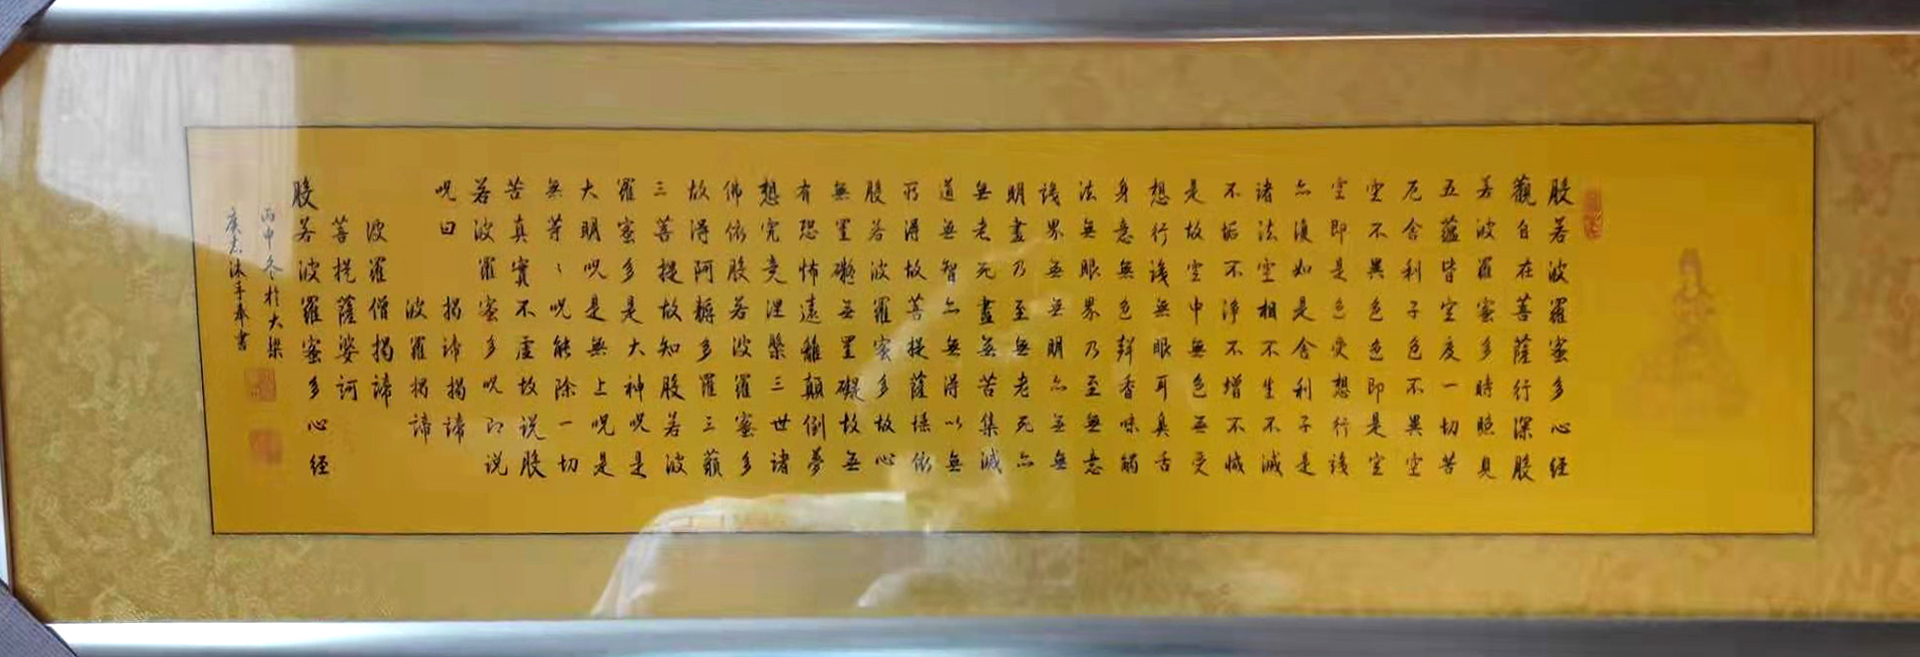 般若波羅蜜多心經
觀自在菩薩行深般
若波羅蜜多時照見
五蘊皆空度一切苦
厄舍利子色不異空
空不異色色即是空
空即是色受想行識
亦復如是舍利子是
諸法空相不生不滅
不垢不淨不增不減
是故空中無色無受
想行識無眼耳鼻舌
身意無色聲香味觸
法無眼界乃至無意
識界無無明亦無無
明盡乃至無老死亦
無老死盡無苦集滅
道無智亦無得以無
所得故菩提薩埵依
般若波羅蜜多故心
無罣礙無罣礙故無
有恐怖遠離顛倒夢
想究竟涅槃三世諸
佛依般若波羅蜜多
故得阿耨多羅三藐
三菩提故知般若波
羅蜜多是大神呪是
大明呪是無上呪是
無等〻呪能除一切
苦真實不虛故說般
若波羅蜜多呪即說
呪曰 揭諦揭諦
波羅揭諦
波羅僧揭諦
菩提薩婆訶
般若波羅蜜多心經
丙申冬於大梁
志沐手奉書